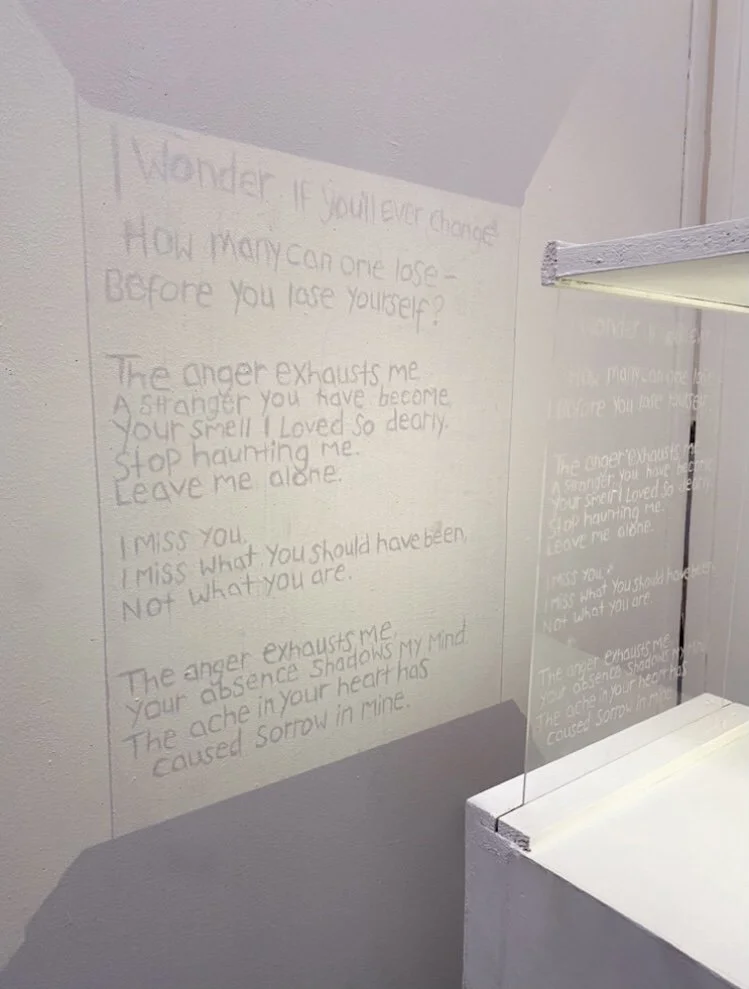 I Wonder If you'll Ever change
How many can one lose –
Before you lose yourself?
The anger exhausts me,
A Stranger you have become,
Your smell I Loved So dearly.
Stop haunting me.
Leave me alone.
I Miss you,
I Miss what you should have been,
Not what you are.
The anger exhausts me,
Your absence Shadows My Mind.
The ache in your heart has
caused Sorrow in Mine.
Wonder
How many can one lose
Before you lose yourself
The anger exhausts me
A Stranger you have become
Your smell I Loved So dearly
Stop haunting me.
Leave me alone.
I Miss you,
I Miss what you should have been,
Not what you are.
The anger exhausts me,
Your absence Shadows My Mind
The ache in your heart has
caused Sorrow in Mine.